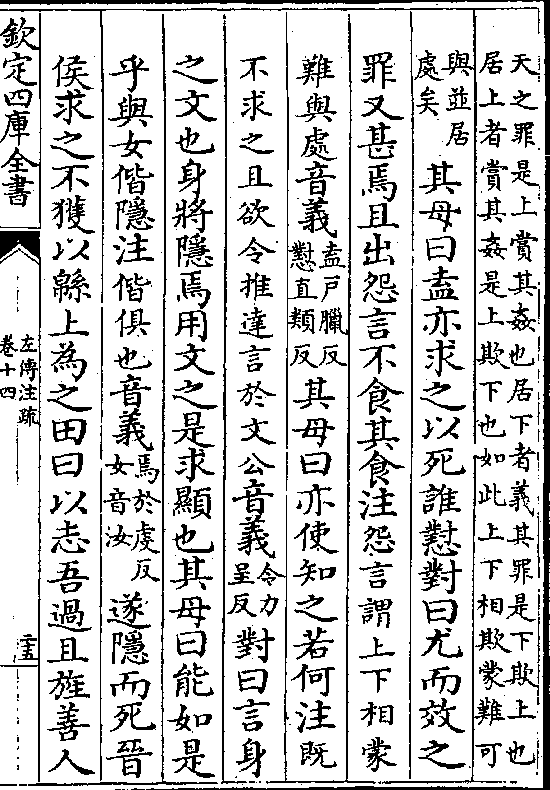 天之罪是上賞其姦也居下者義其罪是下欺上也
居上者賞其姦是上欺下也如此上下相欺蒙難可
與並居
處矣
其母曰盍亦求之以死誰懟對曰尤而效之
罪又甚焉且出怨言不食其食注怨言謂上下相蒙
難與處音義
盍戸臘反
懟直類反
其母曰亦使知之若何注既
不求之且欲令推達言於文公音義
令力
呈反
對曰言身
之文也身將隱焉用文之是求顯也其母曰能如是
乎與女偕隱注偕俱也音義
焉於虔反
女音汝
遂隱而死晉
侯求之不獲以緜上為之田曰以志吾過且旌善人
欽定四庫全書
左傳注疏
卷十四
二五